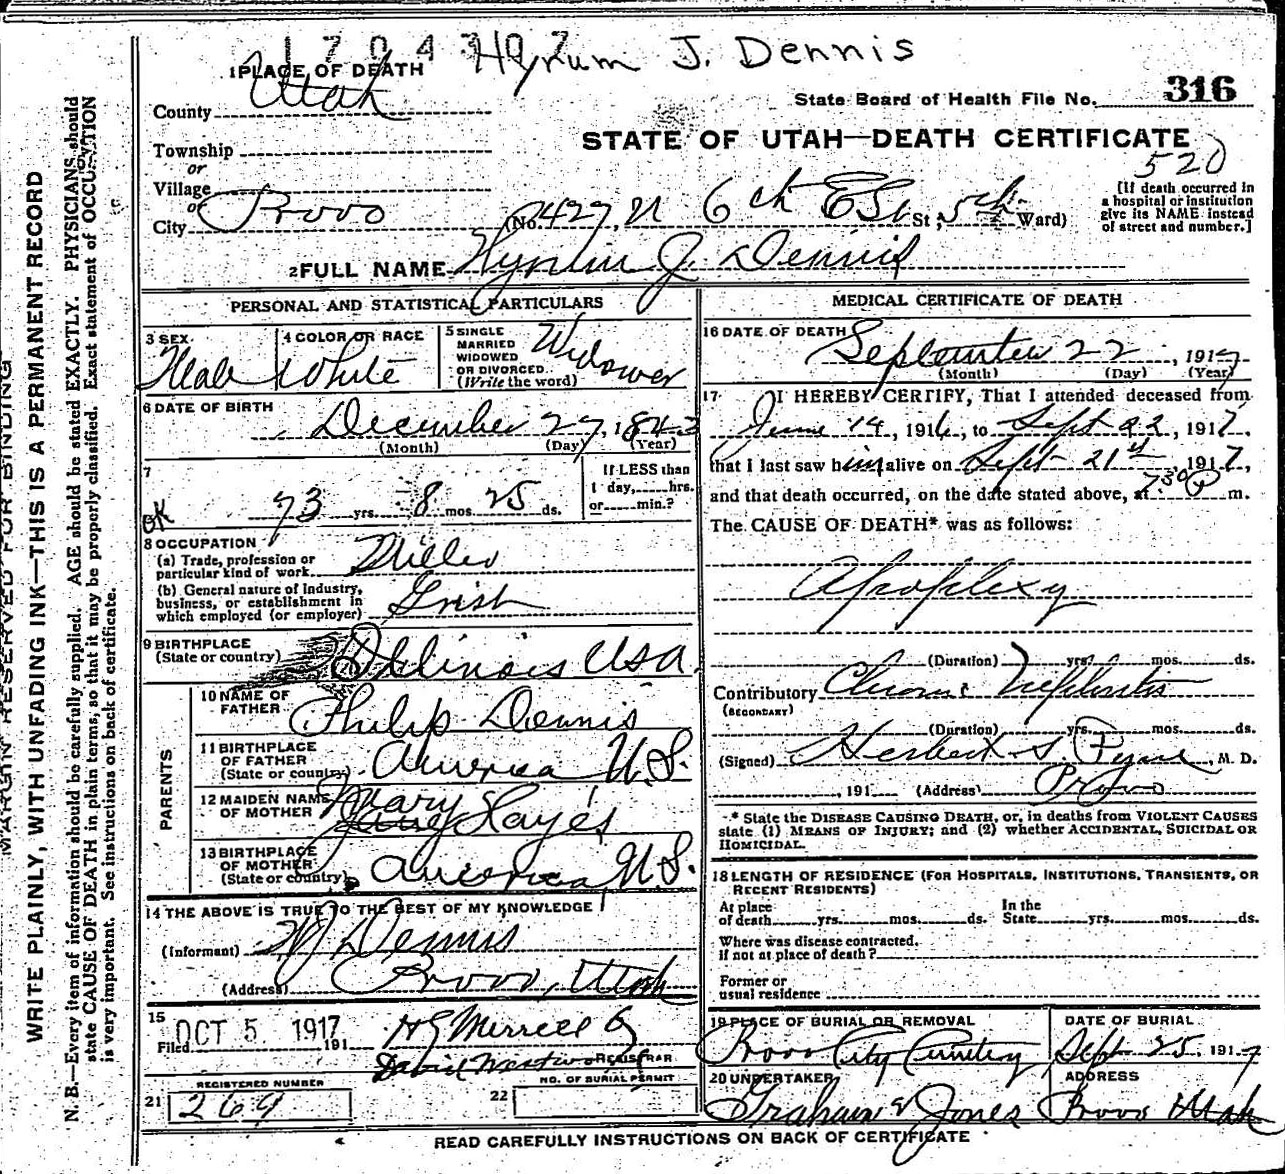 1704307
Hyrum J. Dennis
1 PLACE OF DEATH
County Utah
State Board of Health File No. 316
STATE OF UTAH—DEATH CERTIFICATE
520
Township
or
Village
or
City Provo (No. 427, N 6th E St St; 5th Ward)
[If death occurred in
a hospital or institution
give its NAME instead
of street and number.]
2 FULL NAME Hyrum J. Dennis
PERSONAL AND STATISTICAL PARTICULARS
3 SEX Male
4 COLOR OR RACE White
5 SINGLE
MARRIED
WIDOWED
OR DIVORCED
(Write the word) Widower
6 DATE OF BIRTH
December 27, 1843
(Month) (Day) (Year)
7
OK 73 yrs. 8 mos. 25 ds.
If LESS than
1 day, hrs.
or min.?
8 OCCUPATION
(a) Trade, profession or
particular kind of work Miller
(b) General nature of industry,
business, or establishment in
which employed (or employer) Grist
9 BIRTHPLACE
(State or country) Illinois USA.
PARENTS
10 NAME OF
FATHER Philip Dennis
11 BIRTHPLACE
OF FATHER
(State or country) America U.S.
12 MAIDEN NAME
OF MOTHER Mary Hayes
13 BIRTHPLACE
OF MOTHER
(State or country) America U.S.
14 THE ABOVE IS TRUE TO THE BEST OF MY KNOWLEDGE
(Informant) Dennis
(Address) Provo, Utah
15
Filed OCT 5 1917 191 H G Merrell
David REGISTRAR
REGISTERED NUMBER
21 269
NO. OF BURIAL PERMIT
22
MEDICAL CERTIFICATE OF DEATH
16 DATE OF DEATH
September 22, 1917
(Month) (Day) (Year)
17 I HEREBY CERTIFY, That I attended deceased from
June 14, 1916, to Sept 22, 1917,
that I last saw him alive on Sept 21st, 1917,
and that death occurred, on the date stated above, at 7:30 P m.
The CAUSE OF DEATH* was as follows:
Apoplexy
(Duration) yrs. mos. ds.
Contributory Chronic Nephritis
(SECONDARY)
(Duration) yrs. mos. ds.
(Signed) Herbert S. Pyne, M. D.
, 191 (Address) Provo
* State the DISEASE CAUSING DEATH, or, in deaths from VIOLENT CAUSES
state (1) MEANS OF INJURY; and (2) whether ACCIDENTAL, SUICIDAL OR
HOMICIDAL.
18 LENGTH OF RESIDENCE (FOR HOSPITALS, INSTITUTIONS, TRANSIENTS, OR
RECENT RESIDENTS)
At place
of death yrs. mos. ds.
In the
State yrs. mos. ds.
Where was disease contracted,
if not at place of death?
Former or
usual residence
19 PLACE OF BURIAL OR REMOVAL
Provo City Cemetery
DATE OF BURIAL
Sept 25, 1917
20 UNDERTAKER
Graham & Jones
ADDRESS
Provo Utah
READ CAREFULLY INSTRUCTIONS ON BACK OF CERTIFICATE
MARGIN RESERVED FOR BINDING
WRITE PLAINLY, WITH UNFADING INK—THIS IS A PERMANENT RECORD
N. B.—Every item of information should be carefully supplied. AGE should be stated EXACTLY. PHYSICIANS should
state CAUSE OF DEATH in plain terms, so that it may be properly classified. Exact statement of OCCUPATION
is very important. See instructions on back of certificate.